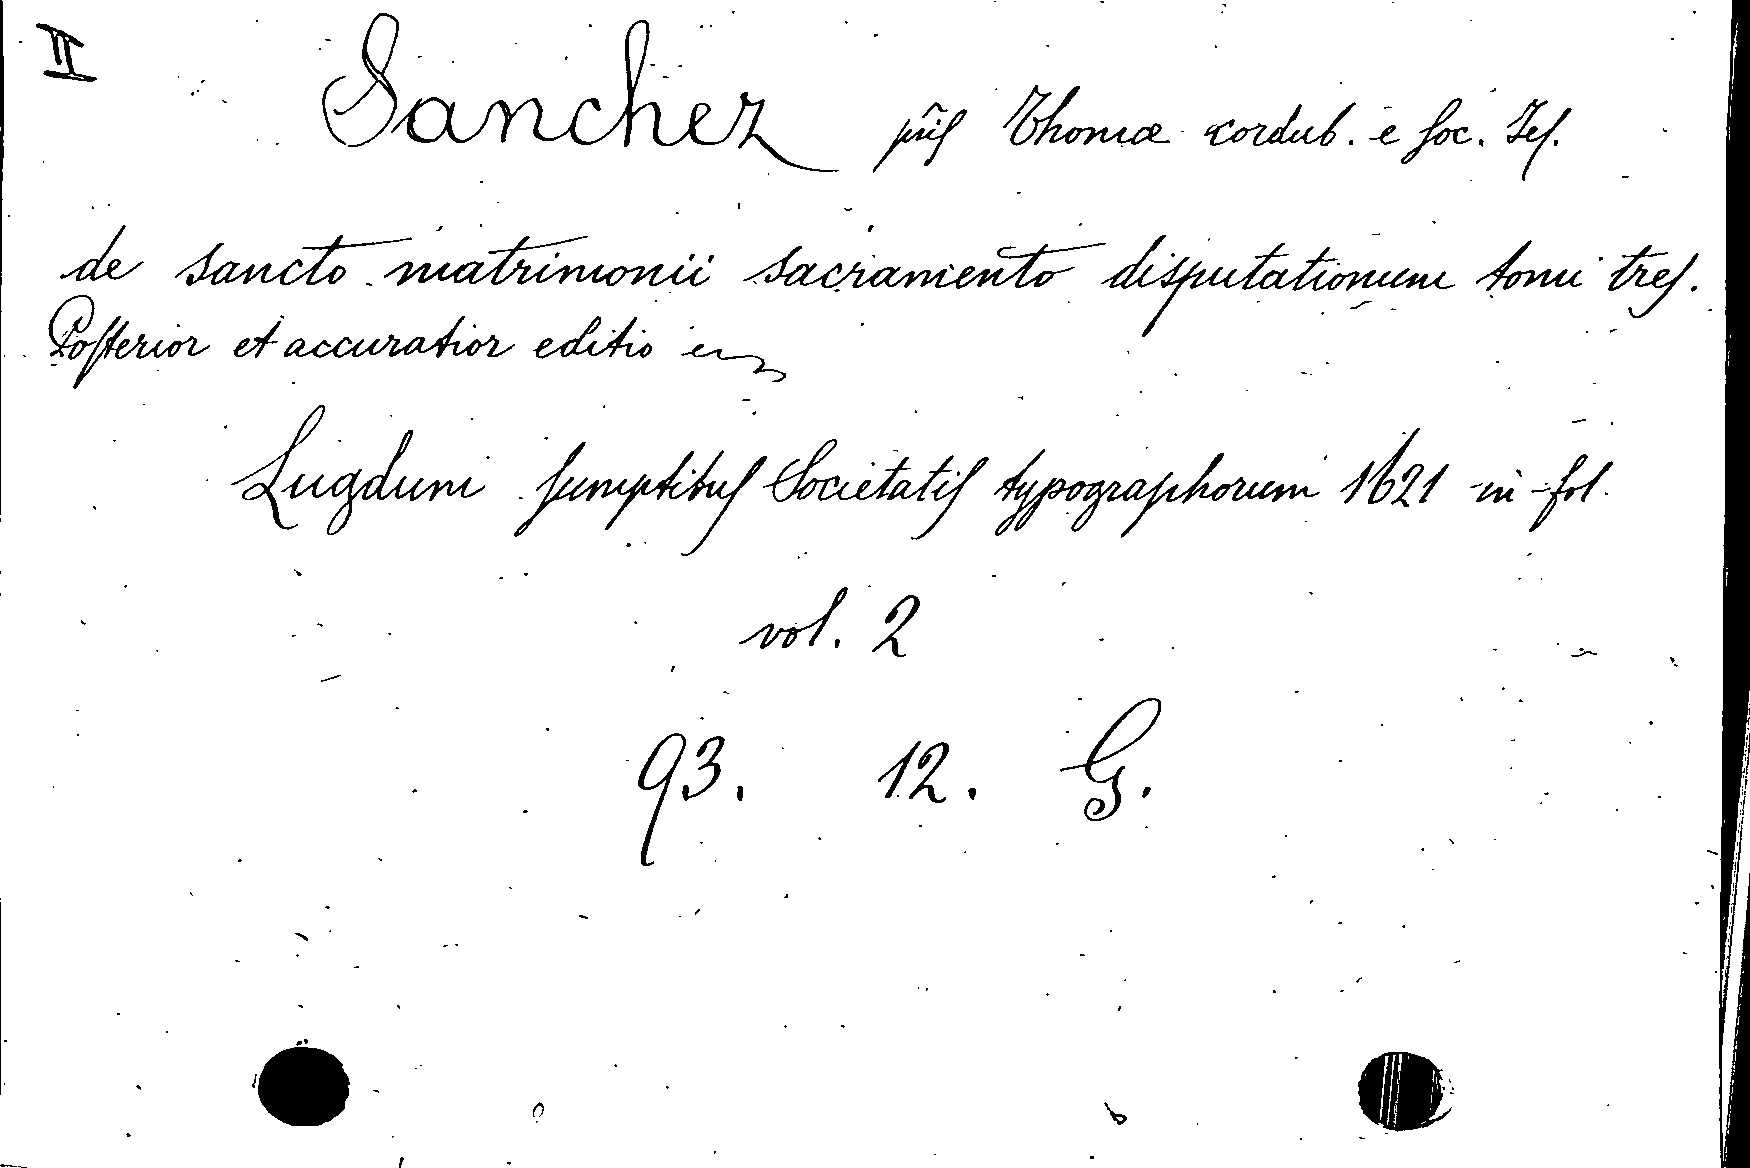 II
Sanchez pris Thomæ cordub. e Soc. Jes.
de sancto matrimonii sacramento disputationum tomi tres.
Posterior et accuratior editio
Lugduni sumptibus Societatis typographorum 1621 in-fol.
vol. 2
93. 12. G.